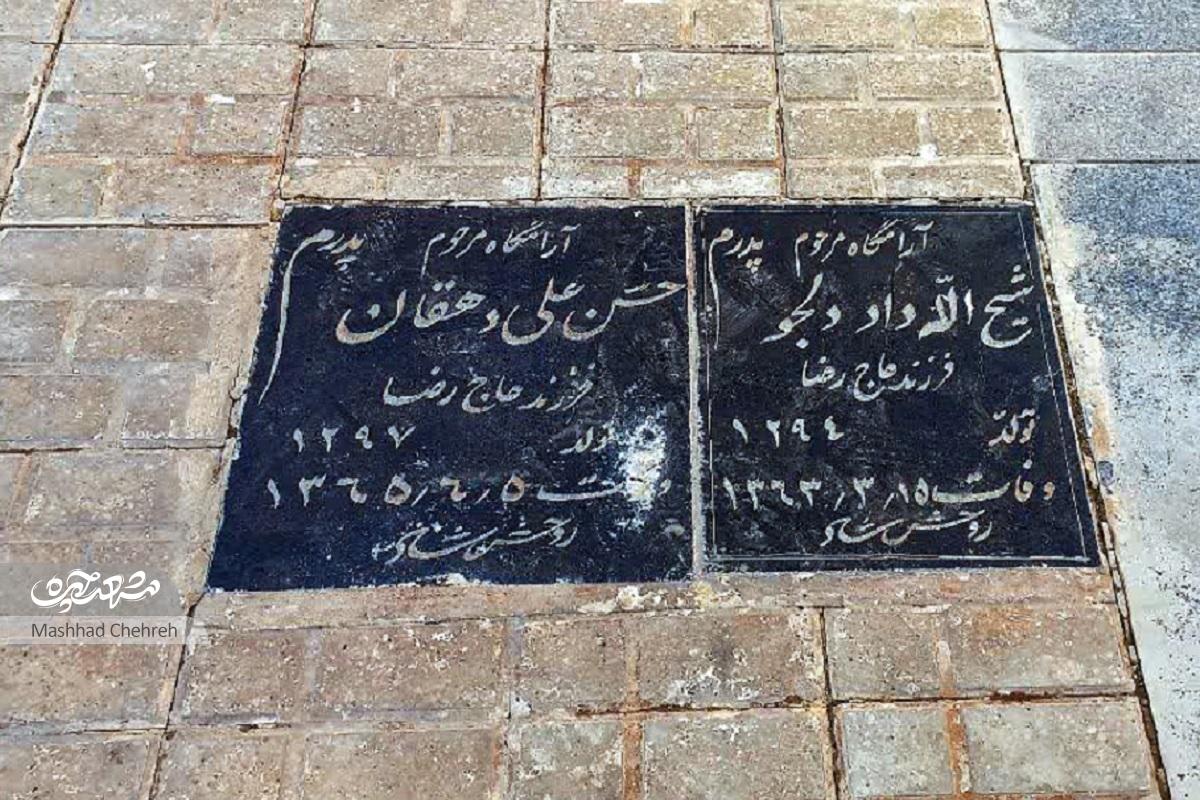 آرامگاه مرحوم پدرم
شیخ اللّه داد دلجو
فرزند حاج رضا
تولّد ١٢٩٤
وفات ١٣٦٣٫٣٫١٥
روحش شاد
آرامگاه مرحوم پدرم
حسن علی دهقان
فرزند حاج رضا
تولد ١٢٩٧
وفات ١٣٦٥٫٦٫٥
روحش شاد
مشهد چهره
Mashhad Chehreh